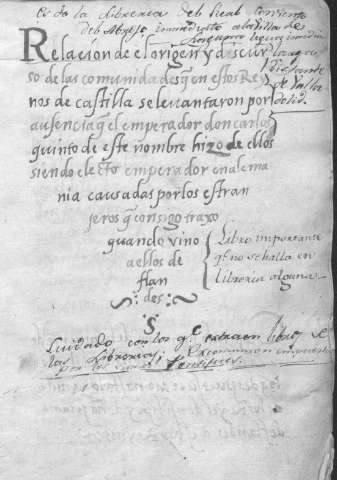 es de la libreria del Real Convento
del Abrojo inmediato a la villa de
Laguna legua y media
Relacion de el origen y discur
so de las comunidades q en estos Rey
nos de castilla se levantaron por
ausencia q el emperador don carlos
quinto de este nombre hizo de ellos
siendo electo emperador en alema
nia causadas por los estran
jeros q consigo traxo
quando vino
a ellos de
flan
des
distante
de Valla
dolid
Libro importante
q. no se halla en
libreria alguna
S
Cuidado con los q. extraen libros de
las Librerias; Excomunion impuesta
por los Pontifices.